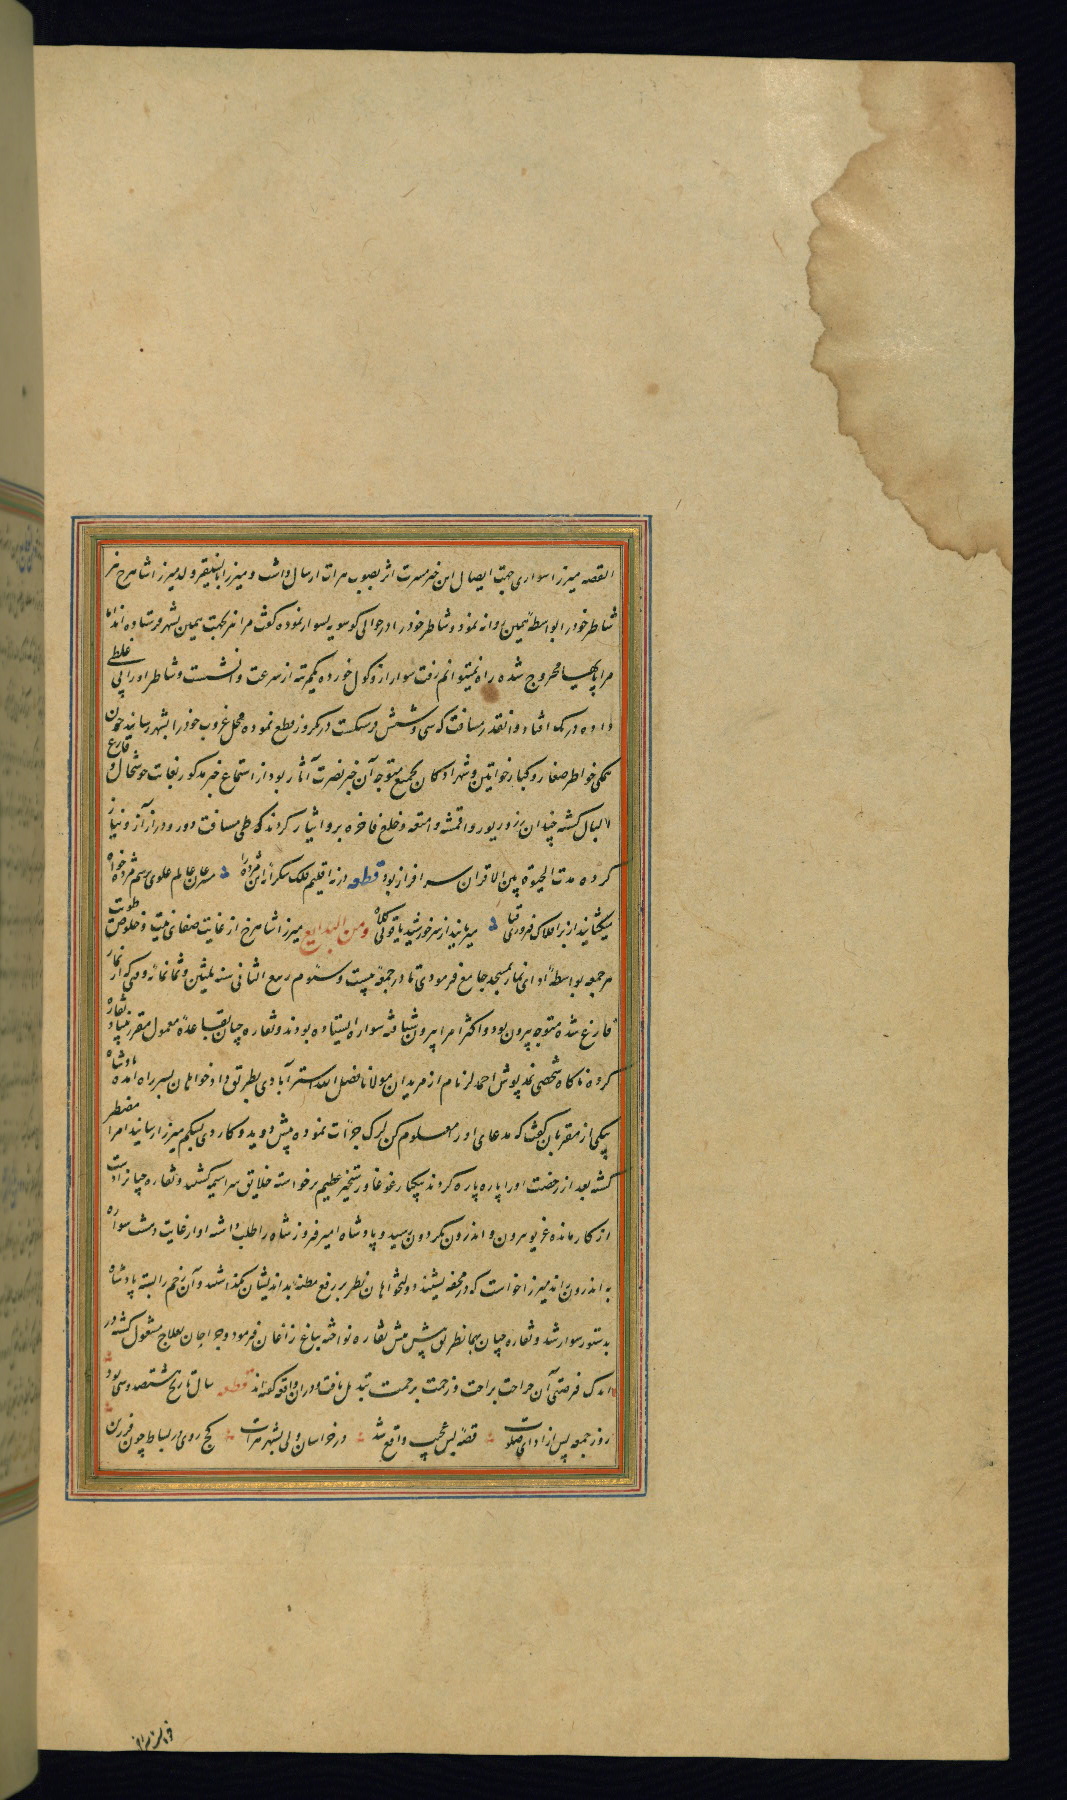 القصه میرزا سواری جهت ایصال این خبر مسرت اثر بصوب هرات ارسال داشت و میرزا بایسنقر ولد میرزا شاهرخ نیز
شاطر خود را بواسطه همین روانه نمود و شاطر خود را در حوالی کوسویه بسوار نموده گفت مرا نیز بجهت همین بشهر فرستاده اند اما
مرا پایها مجروح شده راه نمیتوانم رفت سوار از و کول خورده یکمرتبه از سرعت و شاطر او را پی غلطی
داده در تک افتاد و آنقدر مسافت که سی و شش فرسنگست در یکروز قطع نموده محل غروب خود را بشهر رسانید چون
همگی خواطر صغار و کبار خواتین و شهزادکان بجمیع متوجه آن خبر نصرت آثار بود از استماع خبر مذکور بغایت خوشحال و فارغ
البال گشته چندان زر و زیور و اقمشه و امتعه و خلع فاخره برو ایثار کردند که طی مسافت دور و دراز آز و نیاز
کرده مدت الحیوة بین الاقران سرافراز بود قطعه در نه اقلیم فلک شکرانه این مژده را مسرعان عالم علوی برسم مژده خواه
میکشانید از بر افلاک فیروزی قبا میربانید از سر خورشید یاقوتی کلاه ومن البدایع میرزا شاهرخ از غایت صفای نیت و خلوص طویت
هر جمعه بواسطه ادای نماز بمسجد جامع فرمودی تا در جمعه بیست و سئوم ربیع الثانی سنه ثلثین و ثمانمائه وقتی که از نماز
فارغ شده متوجه بیرون بود و اکثر امرا بیرون شتافته سواره ایستاده بودند و نقاره چیان بقاعده معمول مقرر بنیاد نقاره
کرده ناگاه شخصی نمد پوش احمد لر نام از مریدان مولانا فضل الله استرآبادی بطریق دادخواهان بسر راه آمده پادشاه
بیکی از مقربان گفت که مدعای او را معلوم کن لرک جرأت نموده پیش دوید و کاردی بشکم میرزا رسانید امرا مضطر
گشته بعد از رخصت او را پاره پاره کردند بیکبار غوغا و رستخیز عظیم برخاسته خلایق سراسیمه گشتند و نقاره چیانرا دست
از کار مانده غریو بیرون و اندرون بگردون رسید و پادشاه امیر فیروز شاه را طلب داشته او از غایت دهشت سواره
به اندرون راند میرزا خواست که در محفه نشیند دولتخواهان نظر بر رفع مظنه بداندیشان نگذاشتند و آن زخم را بسته پادشاه
بدستور سوار شد و نقاره چیان بهمانطریق پیش پیش نقاره نواخته بباغ زاغان فرمود و جراحان بعلاج مشغول گشته در
اندک فرصتی آن جراحت براحت و زحمت برحمت تبدیل یافت و در آن واقعه گفته اند قطعه سال تاریخ هشتصد و سی بود
روز جمعه پس از ادای صلوت قصه بس عجیب واقع شد در خراسان ولی بشهر هرات کج روی در بساط چون فرزین